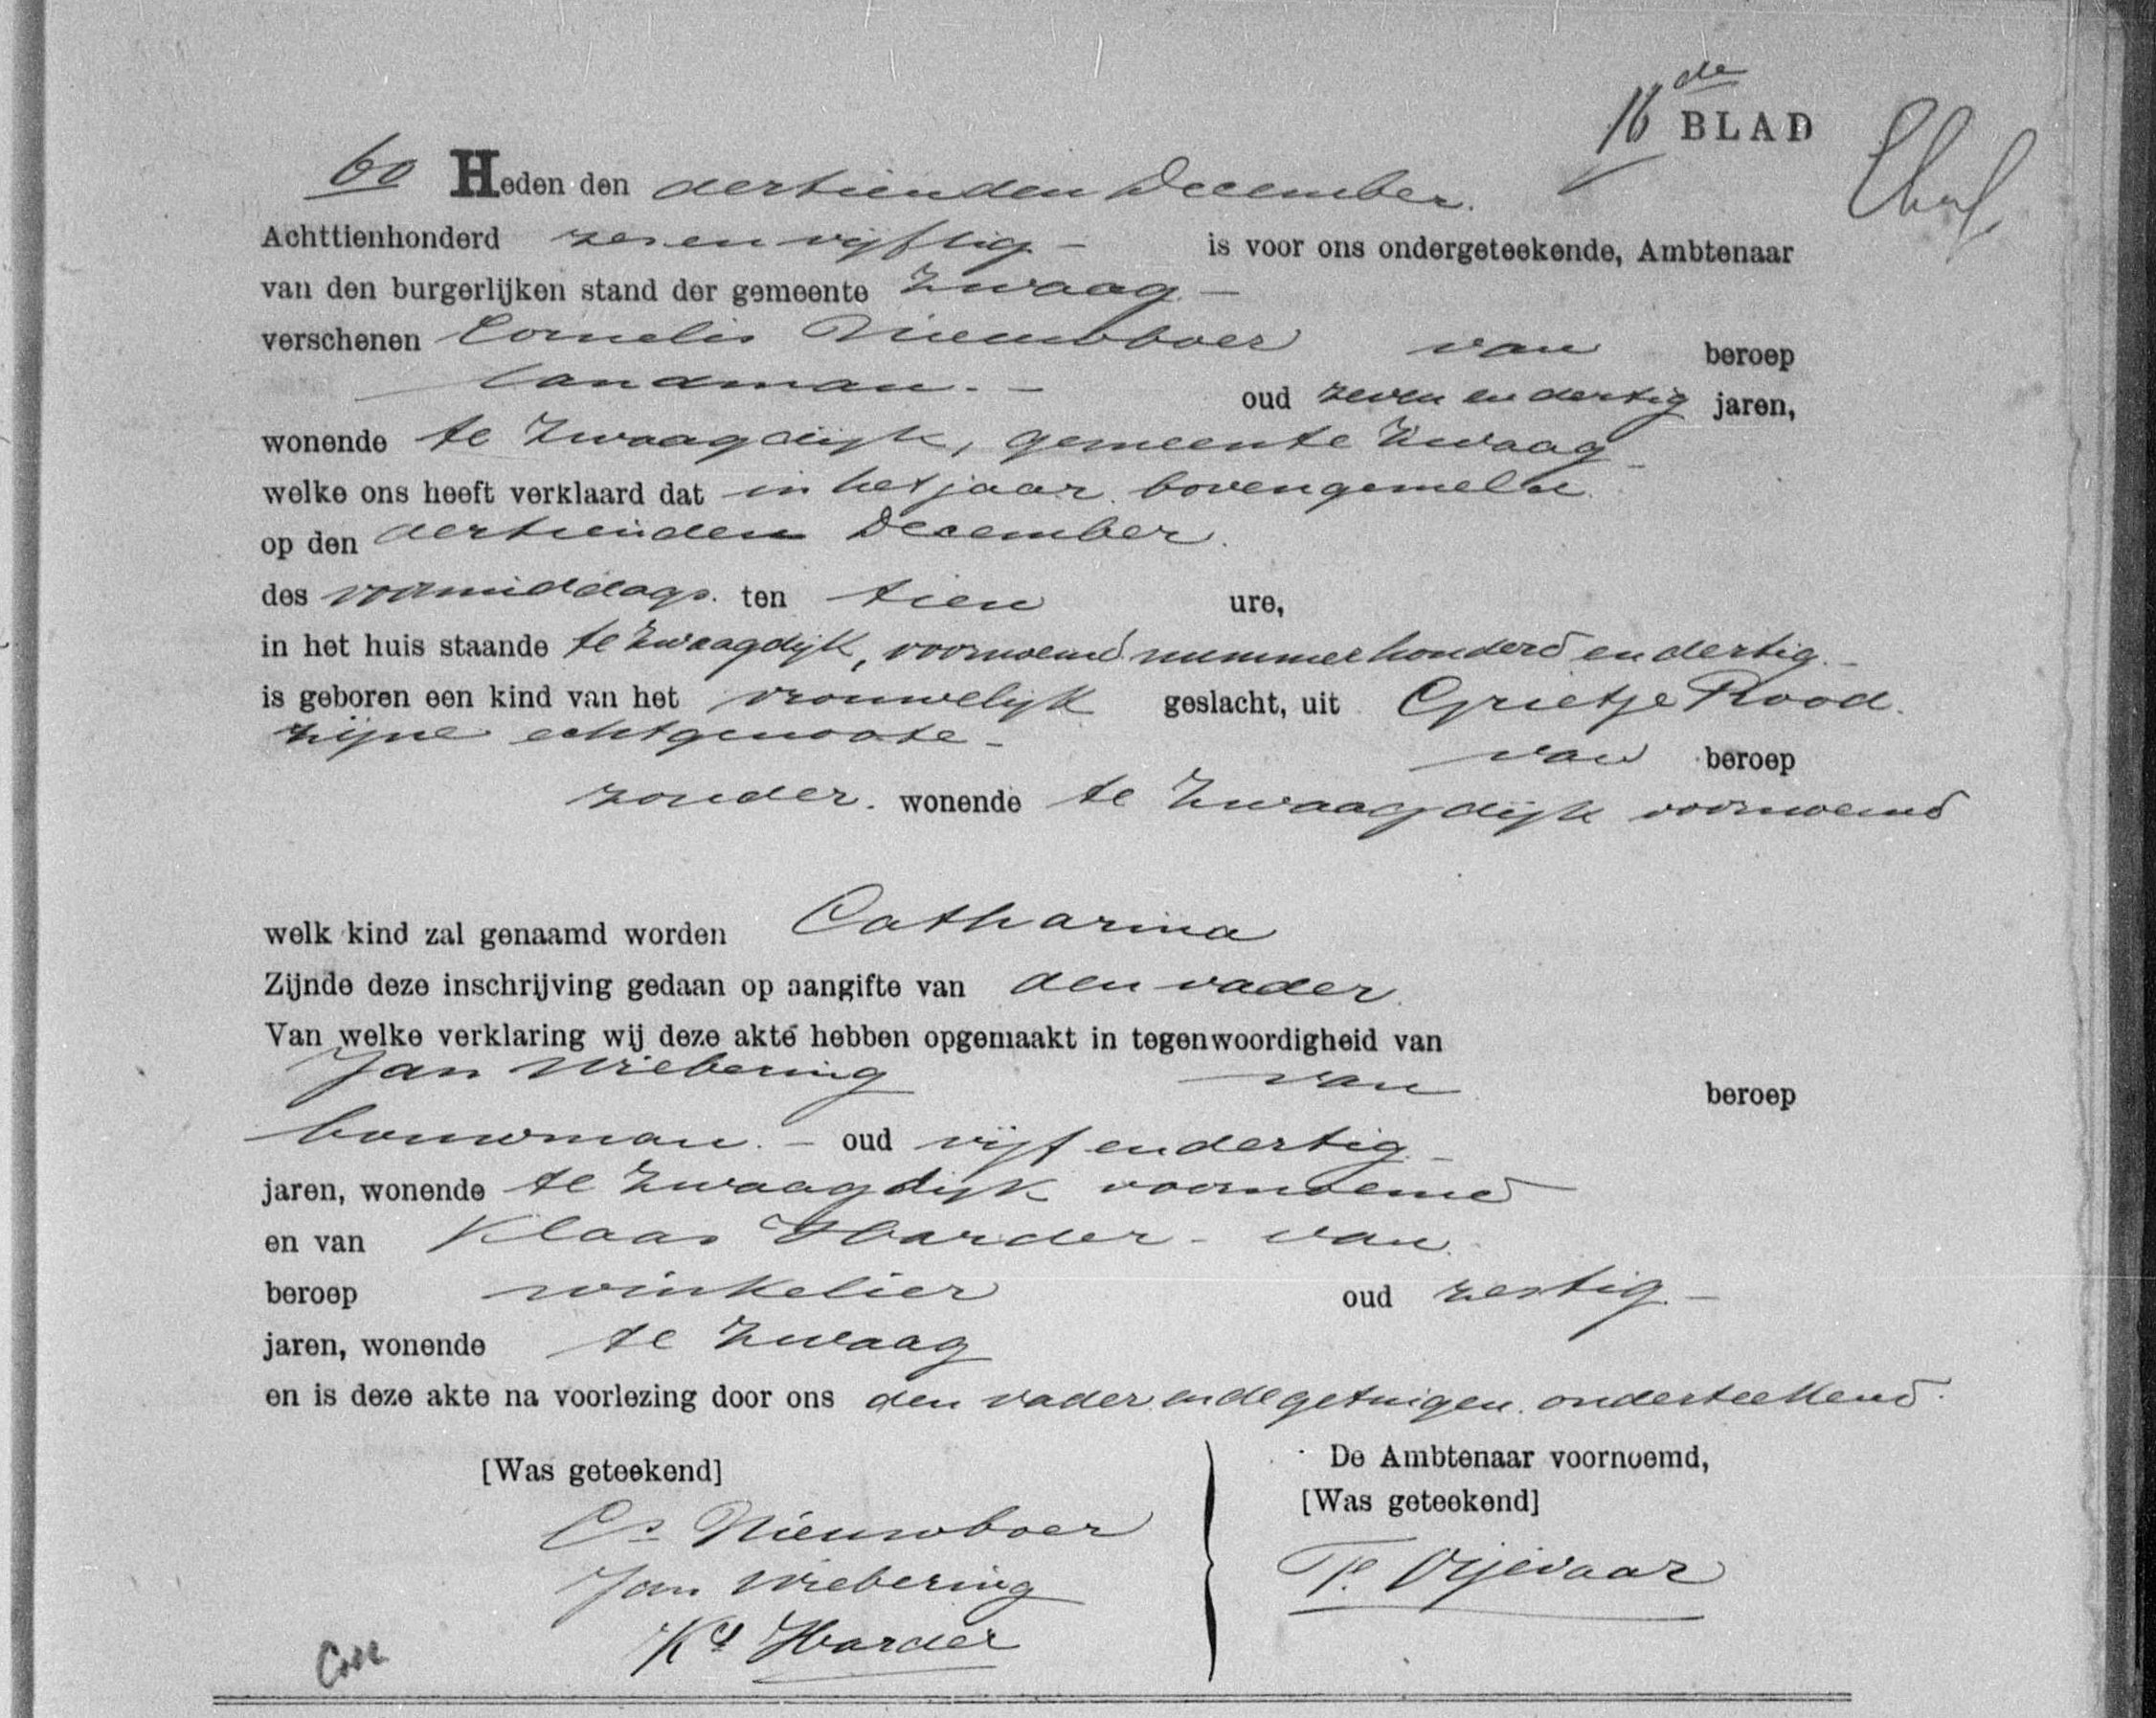 16de BLAD
60 Heden den dertienden December.
Achttienhonderd zes en vijftig - is voor ons ondergeteekende, Ambtenaar
van den burgerlijken stand der gemeente Zwaag. -
verschenen Cornelis Nieuwboer van beroep
landman. - oud zeven en dertig jaren,
wonende te Zwaagdijk, gemeente Zwaag -
welke ons heeft verklaard dat in het jaar bovengemeld
op den dertienden December.
des voormiddags. ten tien ure,
in het huis staande te Zwaagdijk, voornoemd nummer honderd en dertig. -
is geboren een kind van het vrouwelijk geslacht, uit Grietje Rood.
zijne echtgenoote - van beroep
zonder. wonende te Zwaagdijk voornoemd
welk kind zal genaamd worden Catharina
Zijnde deze inschrijving gedaan op aangifte van den vader.
Van welke verklaring wij deze akte hebben opgemaakt in tegenwoordigheid van
Jan Wiebering van beroep
bouwman. - oud vijf en dertig. -
jaren, wonende te Zwaagdijk voornoemd
en van Klaas Harder - van
beroep winkelier oud zestig. -
jaren, wonende te Zwaag
en is deze akte na voorlezing door ons den vader en de getuigen onderteekend.
[Was geteekend]
Cs Nieuwboer
Jan Wiebering
Ks Harder
De Ambtenaar voornoemd,
[Was geteekend]